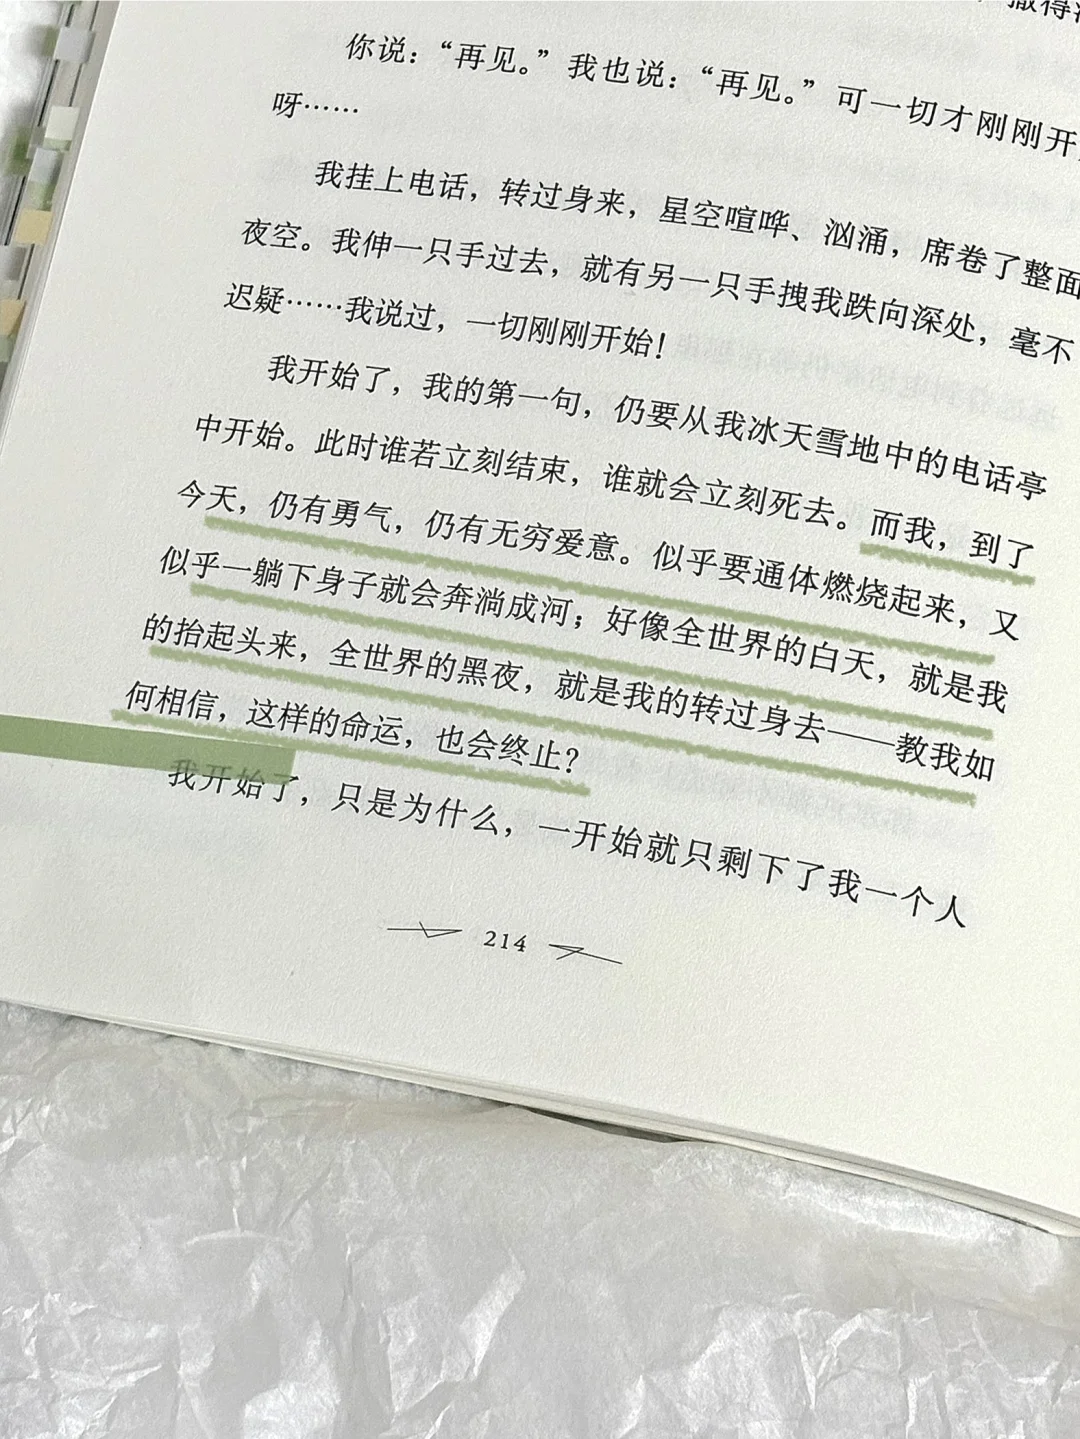 撒得
你说：“再见。”我也说：“再见。”可一切才刚刚开
呀……
我挂上电话，转过身来，星空喧哗、汹涌，席卷了整面
夜空。我伸一只手过去，就有另一只手拽我跌向深处，毫不
迟疑……我说过，一切刚刚开始！
我开始了，我的第一句，仍要从我冰天雪地中的电话亭
中开始。此时谁若立刻结束，谁就会立刻死去。而我，到了
今天，仍有勇气，仍有无穷爱意。似乎要通体燃烧起来，又
似乎一躺下身子就会奔淌成河；好像全世界的白天，就是我
的抬起头来，全世界的黑夜，就是我的转过身去——教我如
何相信，这样的命运，也会终止？
我开始了，只是为什么，一开始就只剩下了我一个人
214